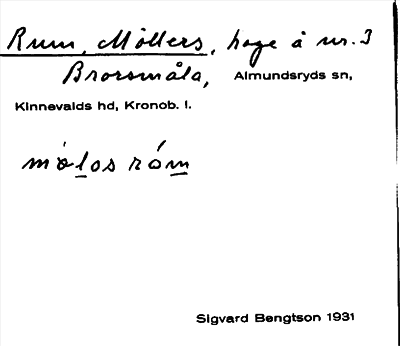 Rum, Möllers, hage å nr. 3
Brorsmåla, Almundsryds sn,
Kinnevalds hd, Kronob. l.
mòlos róm
Sigvard Bengtson 1931